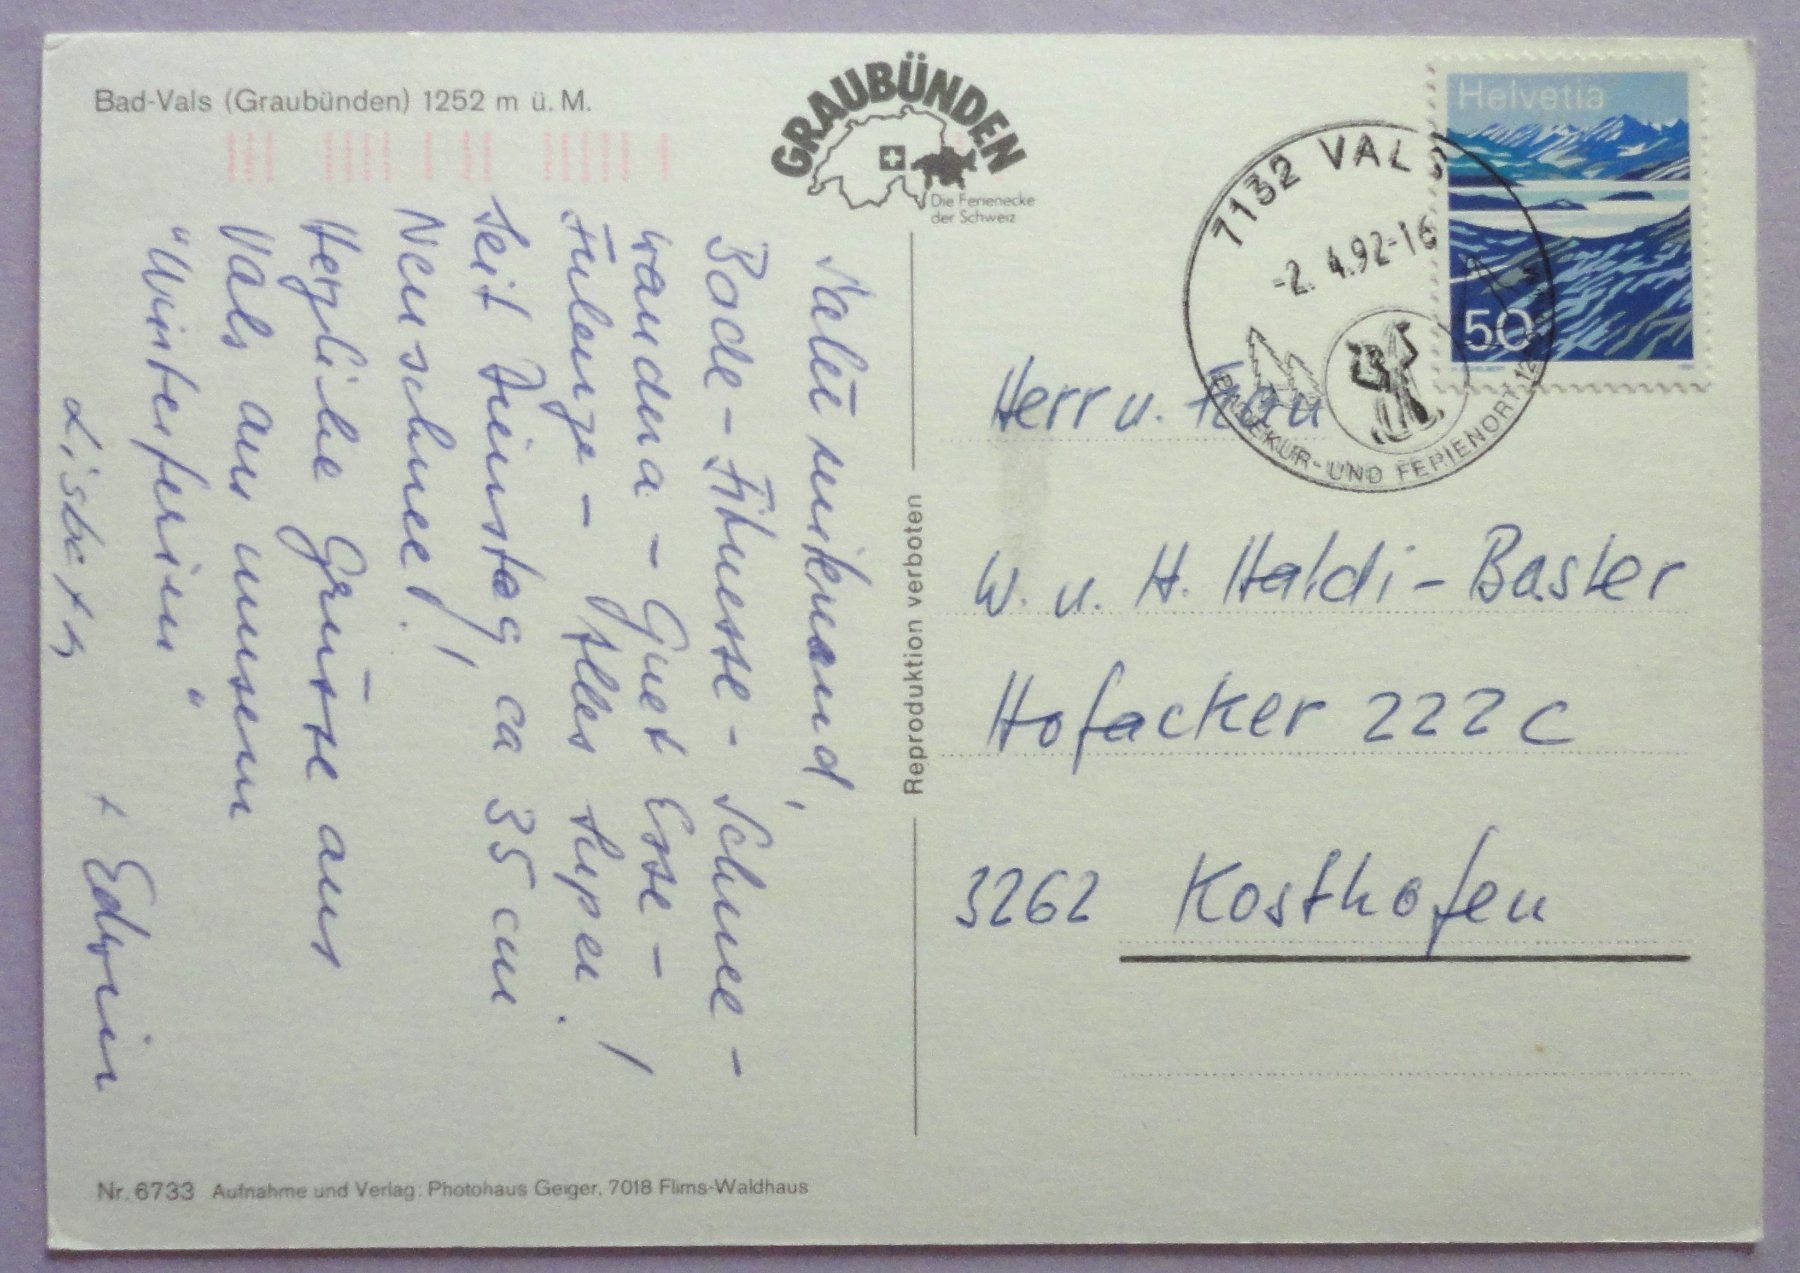 Bad-Vals (Graubünden) 1252 m ü. M.
GRAUBÜNDEN
Die Ferienecke
der Schweiz
Helvetia
50
7132 VALS
-2. 4.92-16
BADEKUR- UND FERIENORT 12
Salü mitenand,
Bade - Fitnesse - Schnee -
wandna - Guet Esse -
Fulenze - Alles super!
Seit Dienstag ca 35 cm
Neuschnee!!
Herzliche Grüsse aus
Vals aus unsern
"Winterferien"
Lisbeth
+ Edwin
Reproduktion verboten
Herr u. Frau
W. u. H. Haldi-Basler
Hofacker 222c
3262 Kosthofen
Nr. 6733 Aufnahme und Verlag: Photohaus Geiger, 7018 Flims-Waldhaus